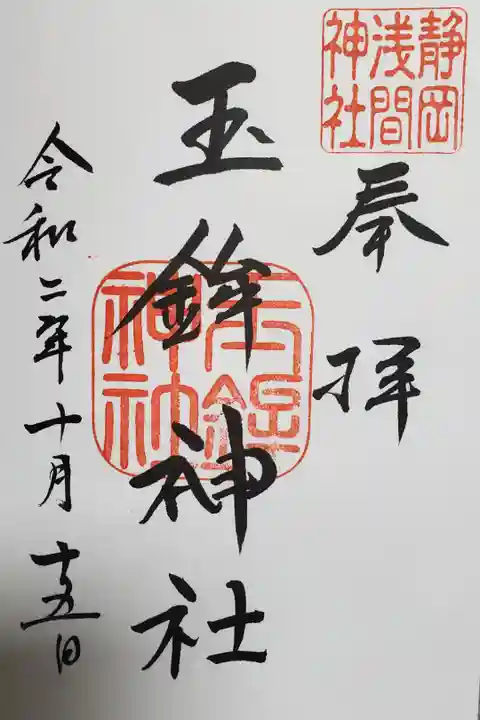 静岡
浅間
神社
奉拝
玉鉾神社
玉鉾
神社
令和二年十月十五日